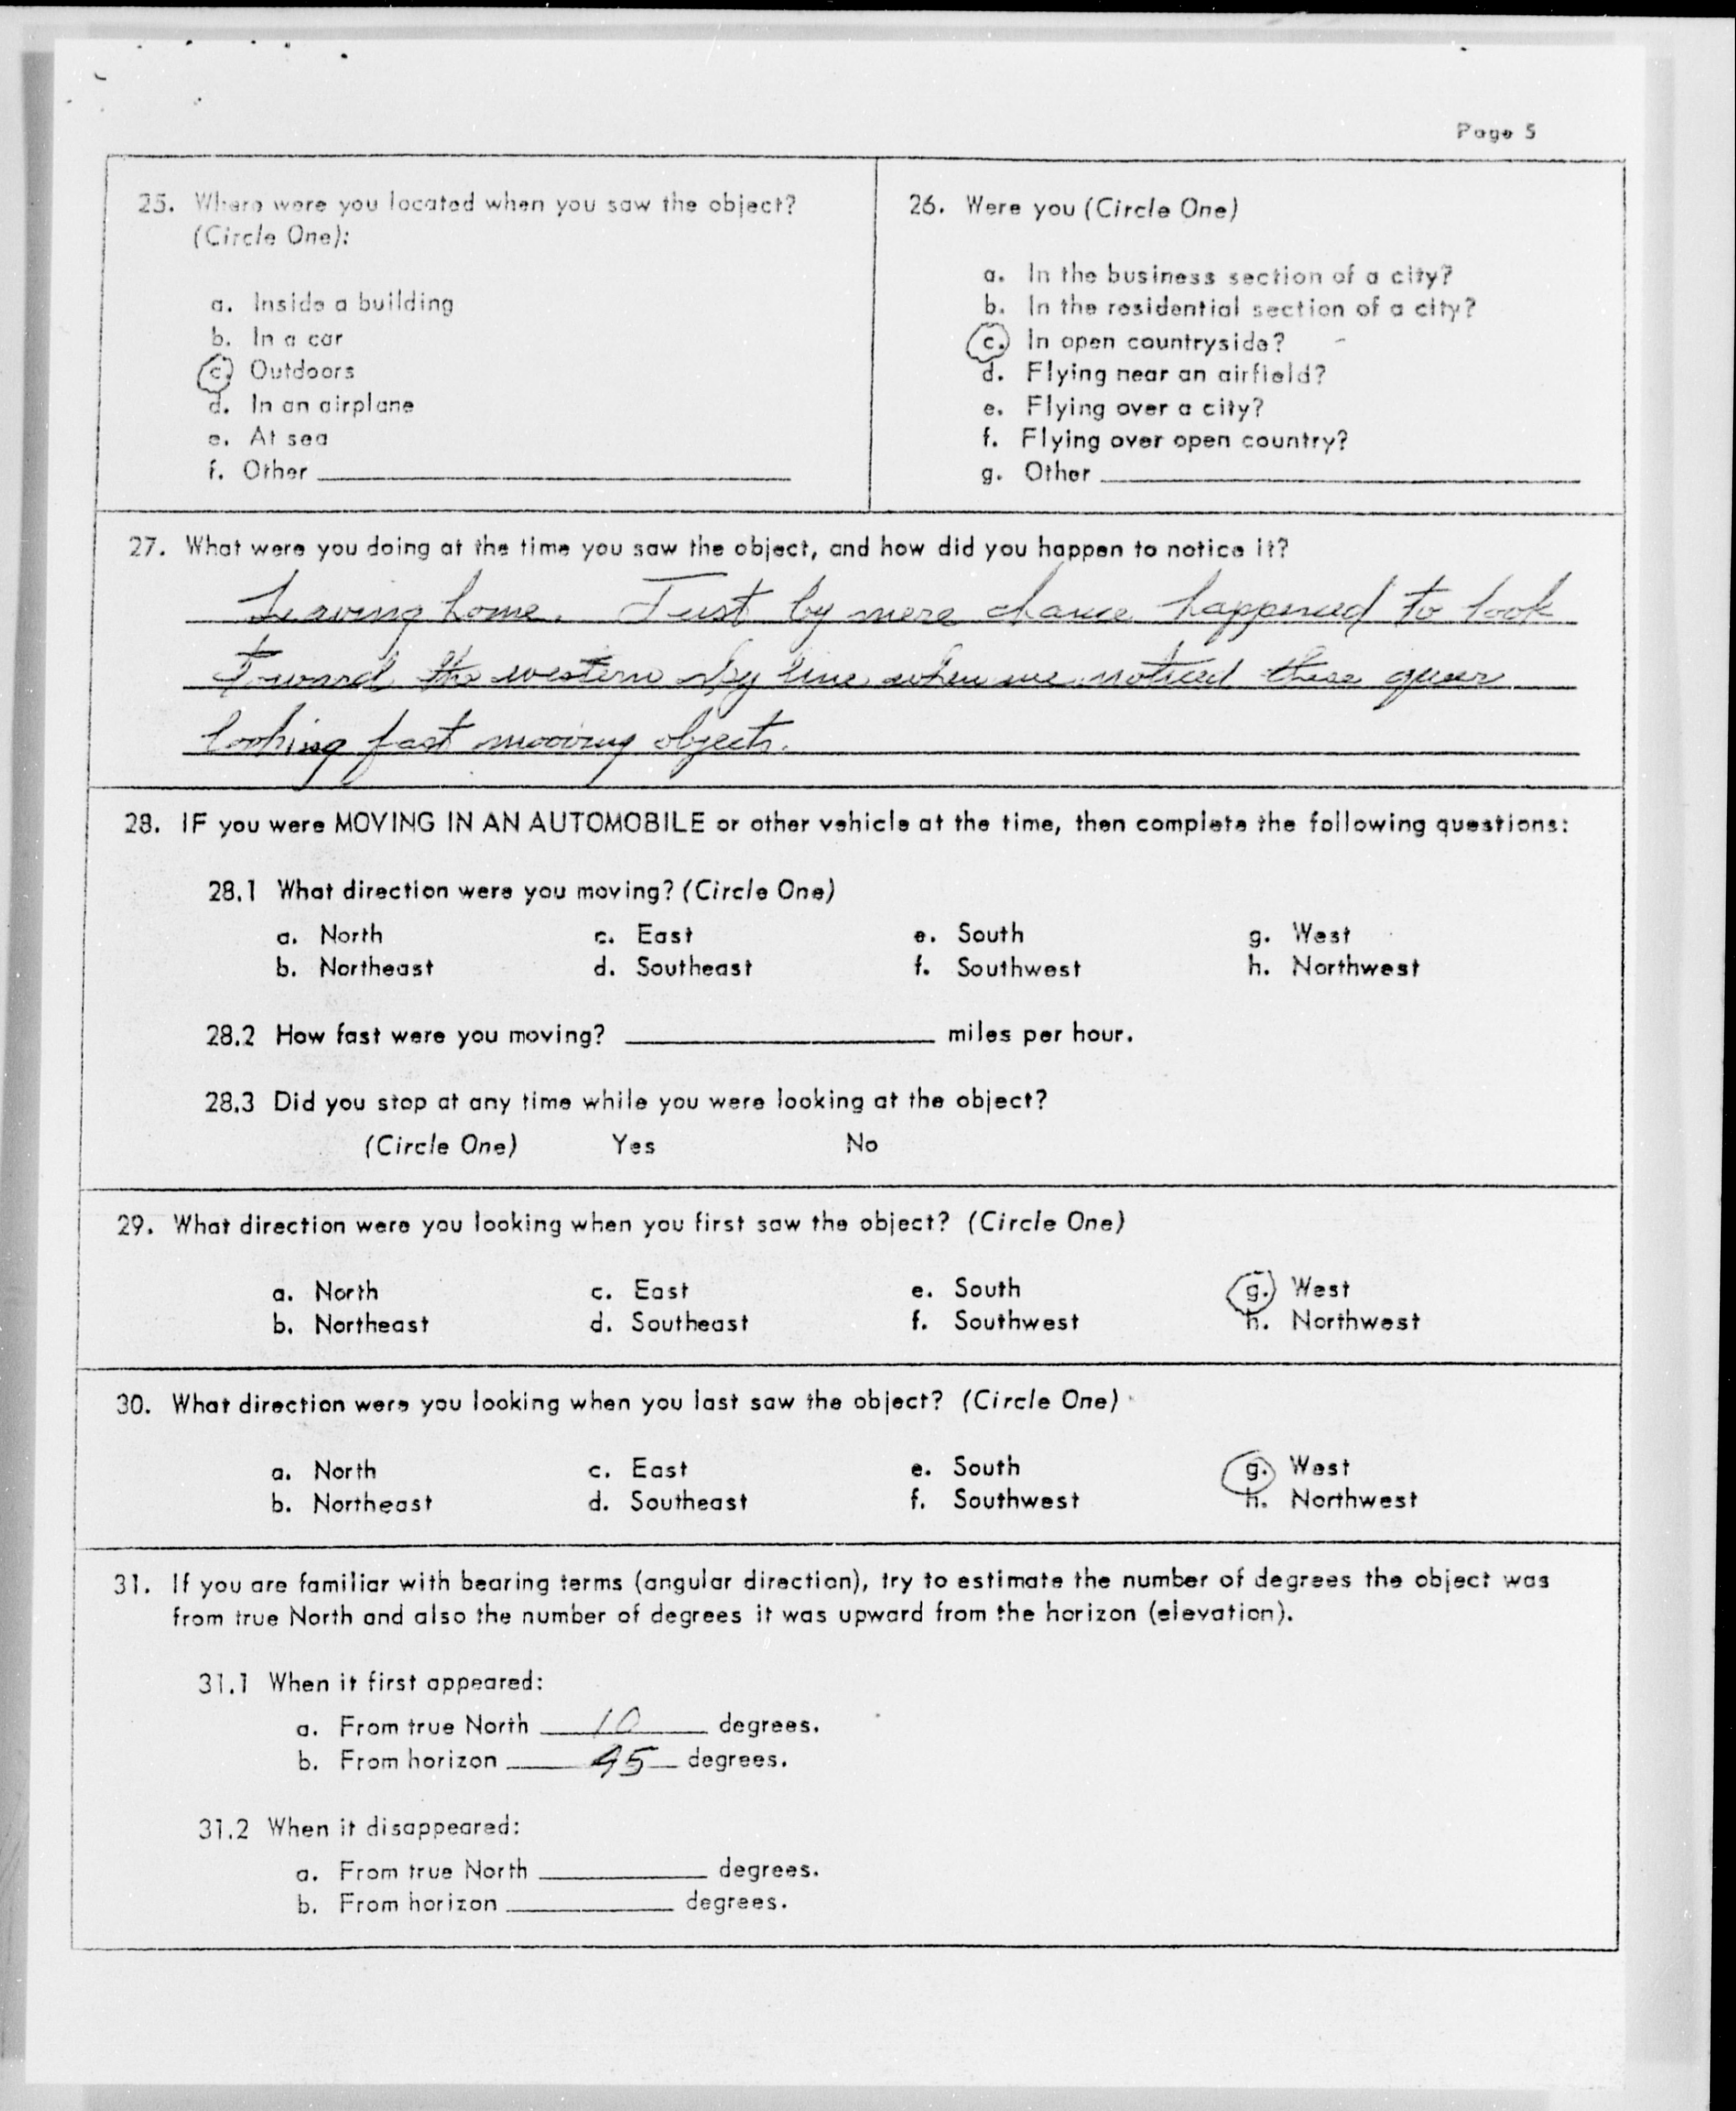 Page 5
25. Where were you located when you saw the object?
(Circle One):
a. Inside a building
b. In a car
c. Outdoors
d. In an airplane
e. At sea
f. Other
26. Were you (Circle One)
a. In the business section of a city?
b. In the residential section of a city?
c. In open countryside?
d. Flying near an airfield?
e. Flying over a city?
f. Flying over open country?
g. Other
27. What were you doing at the time you saw the object, and how did you happen to notice it?
Leaving home. Just by mere chance happened to look
Toward the western sky line when we noticed these queer
looking fast mooving objects.
28. IF you were MOVING IN AN AUTOMOBILE or other vehicle at the time, then complete the following questions:
28.1 What direction were you moving? (Circle One)
a. North c. East e. South g. West
b. Northeast d. Southeast f. Southwest h. Northwest
28.2 How fast were you moving? miles per hour.
28.3 Did you stop at any time while you were looking at the object?
(Circle One) Yes No
29. What direction were you looking when you first saw the object? (Circle One)
a. North c. East e. South g. West
b. Northeast d. Southeast f. Southwest h. Northwest
30. What direction were you looking when you last saw the object? (Circle One)
a. North c. East e. South g. West
b. Northeast d. Southeast f. Southwest h. Northwest
31. If you are familiar with bearing terms (angular direction), try to estimate the number of degrees the object was
from true North and also the number of degrees it was upward from the horizon (elevation).
31.1 When it first appeared:
a. From true North 10 degrees.
b. From horizon 45 degrees.
31.2 When it disappeared:
a. From true North degrees.
b. From horizon degrees.